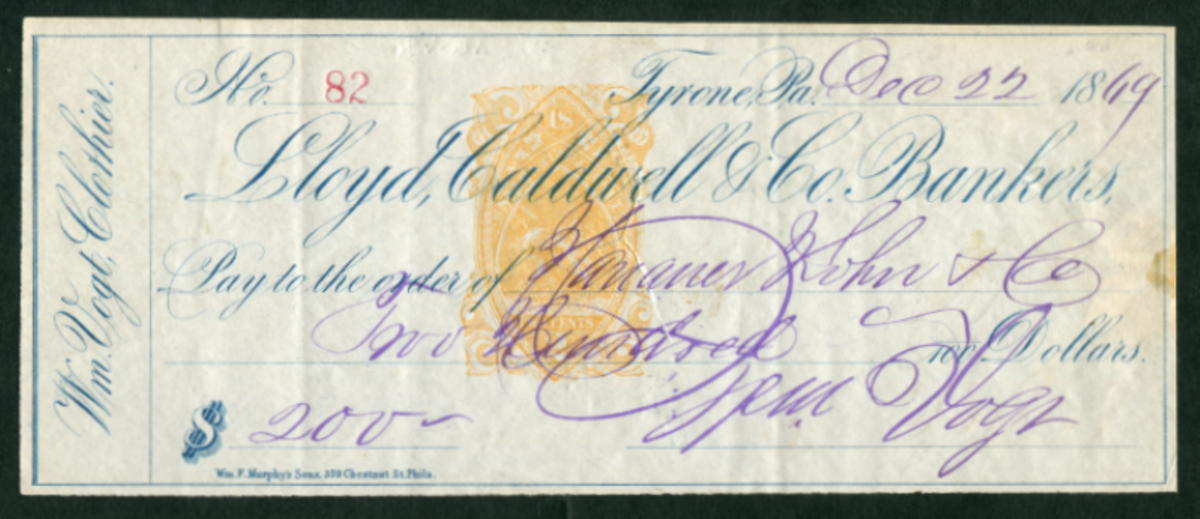 Wm. Vogt, Clothier.
No. 82 Tyrone, Pa. Dec 22 1869
Lloyd, Caldwell & Co. Bankers,
Pay to the order of Wanauer Kohn & Co
Two Hundred no/100 Dollars.
$ 200- Wm Vogt
Wm. F. Murphy's Sons, 339 Chestnut St. Phila.